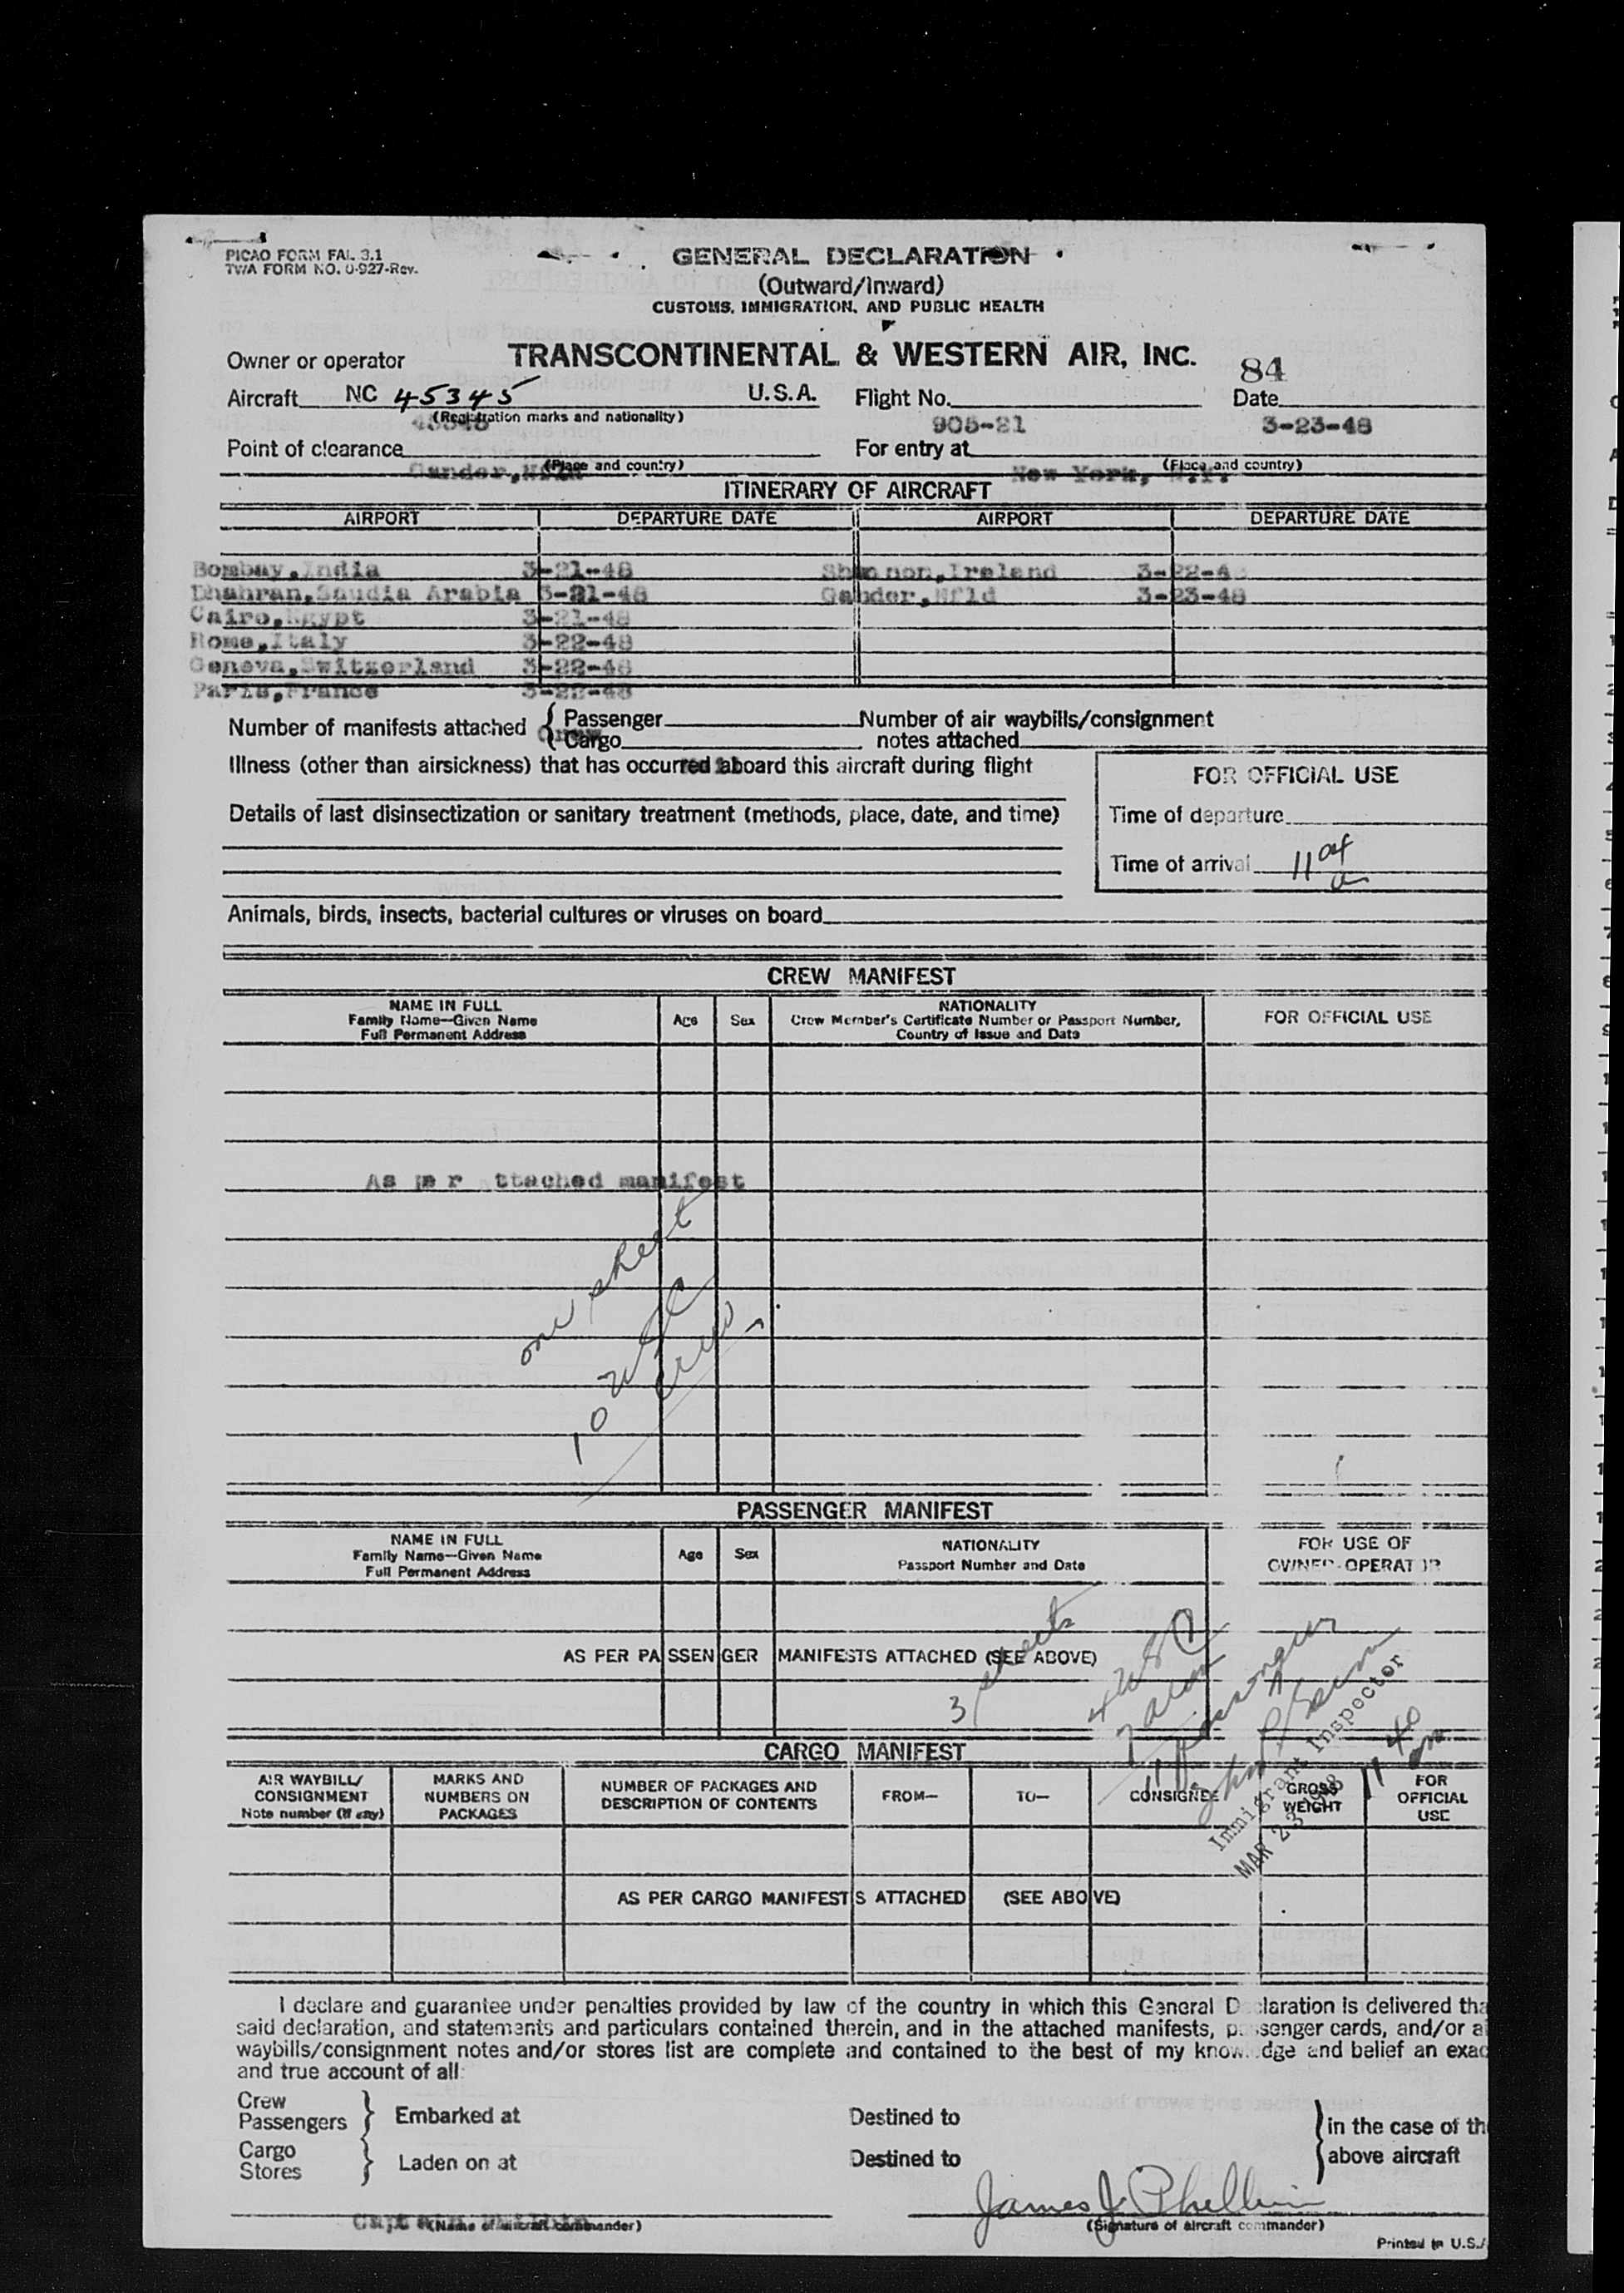 PICAO FORM FAL 3.1
TWA FORM NO. 0-927-Rev.
GENERAL DECLARATION
(Outward/Inward)
CUSTOMS, IMMIGRATION, AND PUBLIC HEALTH
Owner or operator TRANSCONTINENTAL & WESTERN AIR, INC.
84
Aircraft NC 45345 U.S.A. Flight No. Date
(Registration marks and nationality)
905-21 3-23-48
Point of clearance For entry at
(Place and country) (Place and country)
Gander, New York, N.Y.
ITINERARY OF AIRCRAFT
AIRPORT DEPARTURE DATE AIRPORT DEPARTURE DATE
Bombay,India 3-21-48 Shannon,Ireland 3-22-4
Dhahran,Saudia Arabia 3-21-48 Gander,Nfld 3-23-48
Cairo,Egypt 3-21-48
Rome,Italy 3-22-48
Geneva,Switzerland 3-22-48
Paris,France 3-22-48
Number of manifests attached { Passenger Number of air waybills/consignment
Cargo notes attached
Illness (other than airsickness) that has occurred aboard this aircraft during flight
FOR OFFICIAL USE
Details of last disinsectization or sanitary treatment (methods, place, date, and time)
Time of departure
Time of arrival 11
Animals, birds, insects, bacterial cultures or viruses on board
CREW MANIFEST
NAME IN FULL
Family Name—Given Name
Full Permanent Address
Age Sex
NATIONALITY
Crew Member's Certificate Number or Passport Number,
Country of Issue and Date
FOR OFFICIAL USE
As pe r ttached manifest
one sheet
10 USC
crew
PASSENGER MANIFEST
NAME IN FULL
Family Name—Given Name
Full Permanent Address
Age Sex
NATIONALITY
Passport Number and Date
FOR USE OF
OWNER-OPERATOR
AS PER PASSENGER MANIFESTS ATTACHED (SEE ABOVE)
3 sheets
4 USC
7 alien
11 passengers
Immigrant Inspector
MAR 23 1948
11 40 am
CARGO MANIFEST
AIR WAYBILL/
CONSIGNMENT
Note number (if any)
MARKS AND
NUMBERS ON
PACKAGES
NUMBER OF PACKAGES AND
DESCRIPTION OF CONTENTS
FROM—
TO—
CONSIGNEE
GROSS
WEIGHT
FOR
OFFICIAL
USE
AS PER CARGO MANIFESTS ATTACHED (SEE ABOVE)
I declare and guarantee under penalties provided by law of the country in which this General Declaration is delivered tha
said declaration, and statements and particulars contained therein, and in the attached manifests, passenger cards, and/or ai
waybills/consignment notes and/or stores list are complete and contained to the best of my knowledge and belief an exac
and true account of all:
Crew
Passengers } Embarked at Destined to
Cargo
Stores } Laden on at Destined to
} in the case of th
above aircraft
Captain
(Name of aircraft commander)
James J. Phellin
(Signature of aircraft commander)
Printed in U.S.A